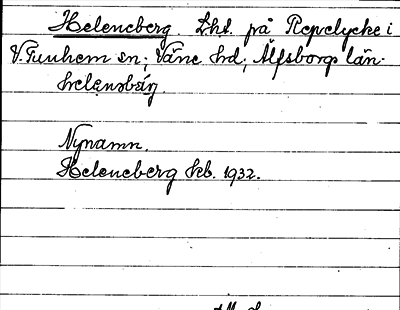 Heleneberg. Lht. på Repelycke i
V. Tunhem sn; Väne hd; Älfsborgs län.
helenəbærj
Nynamn.
Heleneberg kb. 1932.